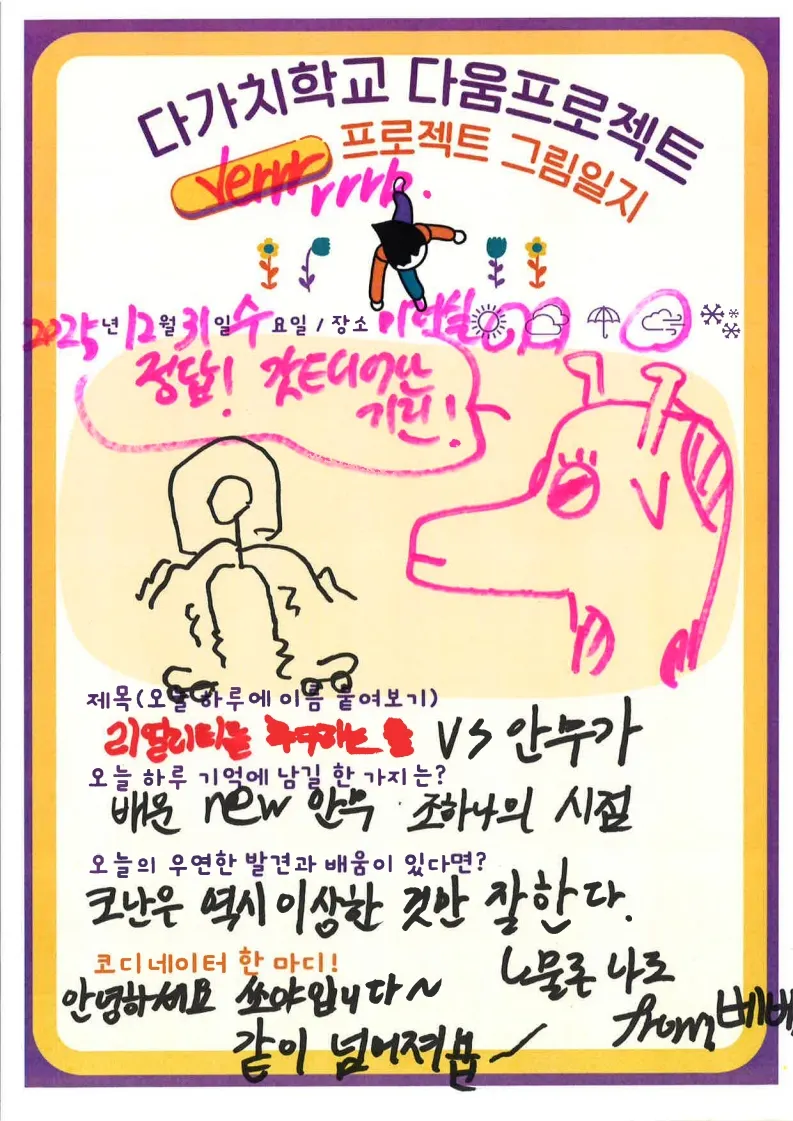 다가치학교 다움프로젝트
프로젝트 그림일지
verrrrrrrb.
2025년 12월 31일 수요일 / 장소
정답! 갓 태어난
기린!
제목(오늘 하루에 이름 붙여보기)
리얼리티를 추구하는 VS 안무가
오늘 하루 기억에 남길 한 가지는?
배운 new 안무 조하나의 시점
오늘의 우연한 발견과 배움이 있다면?
크난은 역시 이상한 것만 잘한다.
ㄴ물론 나도
코디네이터 한 마디!
안녕하세요 쏘야입니다~
from 베베
같이 넘어져봄